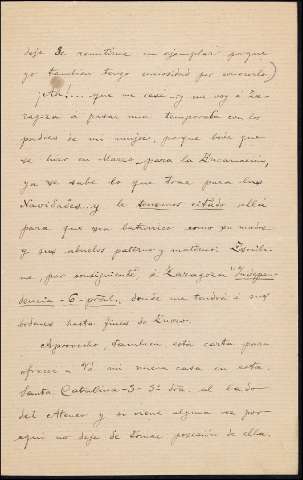 deje de remitirme un ejemplar porque
yo tambien tengo curiosidad por conocerlo)
¡Ah!... que me casé y me voy á Za-
ragoza á pasar una temporada con los
padres de mi mujer, porque boda que
se hizo en Marzo, para la Encarnación,
ya se sabe lo que trae para las
Navidades... y le tenemos citado allá
para que sea baturrico como su madre
y sus abuelos paterno y materno. Escriba-
me, por consiguiente, á Zaragoza "Indepen-
dencia - 6 - pral., donde me tendrá á sus
ordenes hasta fines de Enero.
Aprovecho, tambien, esta carta para
ofrecer a Vd mi nueva casa en esta.
Santa Catalina - 3 - 3º dra. al lado
del Ateneo y si viene alguna vez por
aqui no deje de tomar posesión de ella.